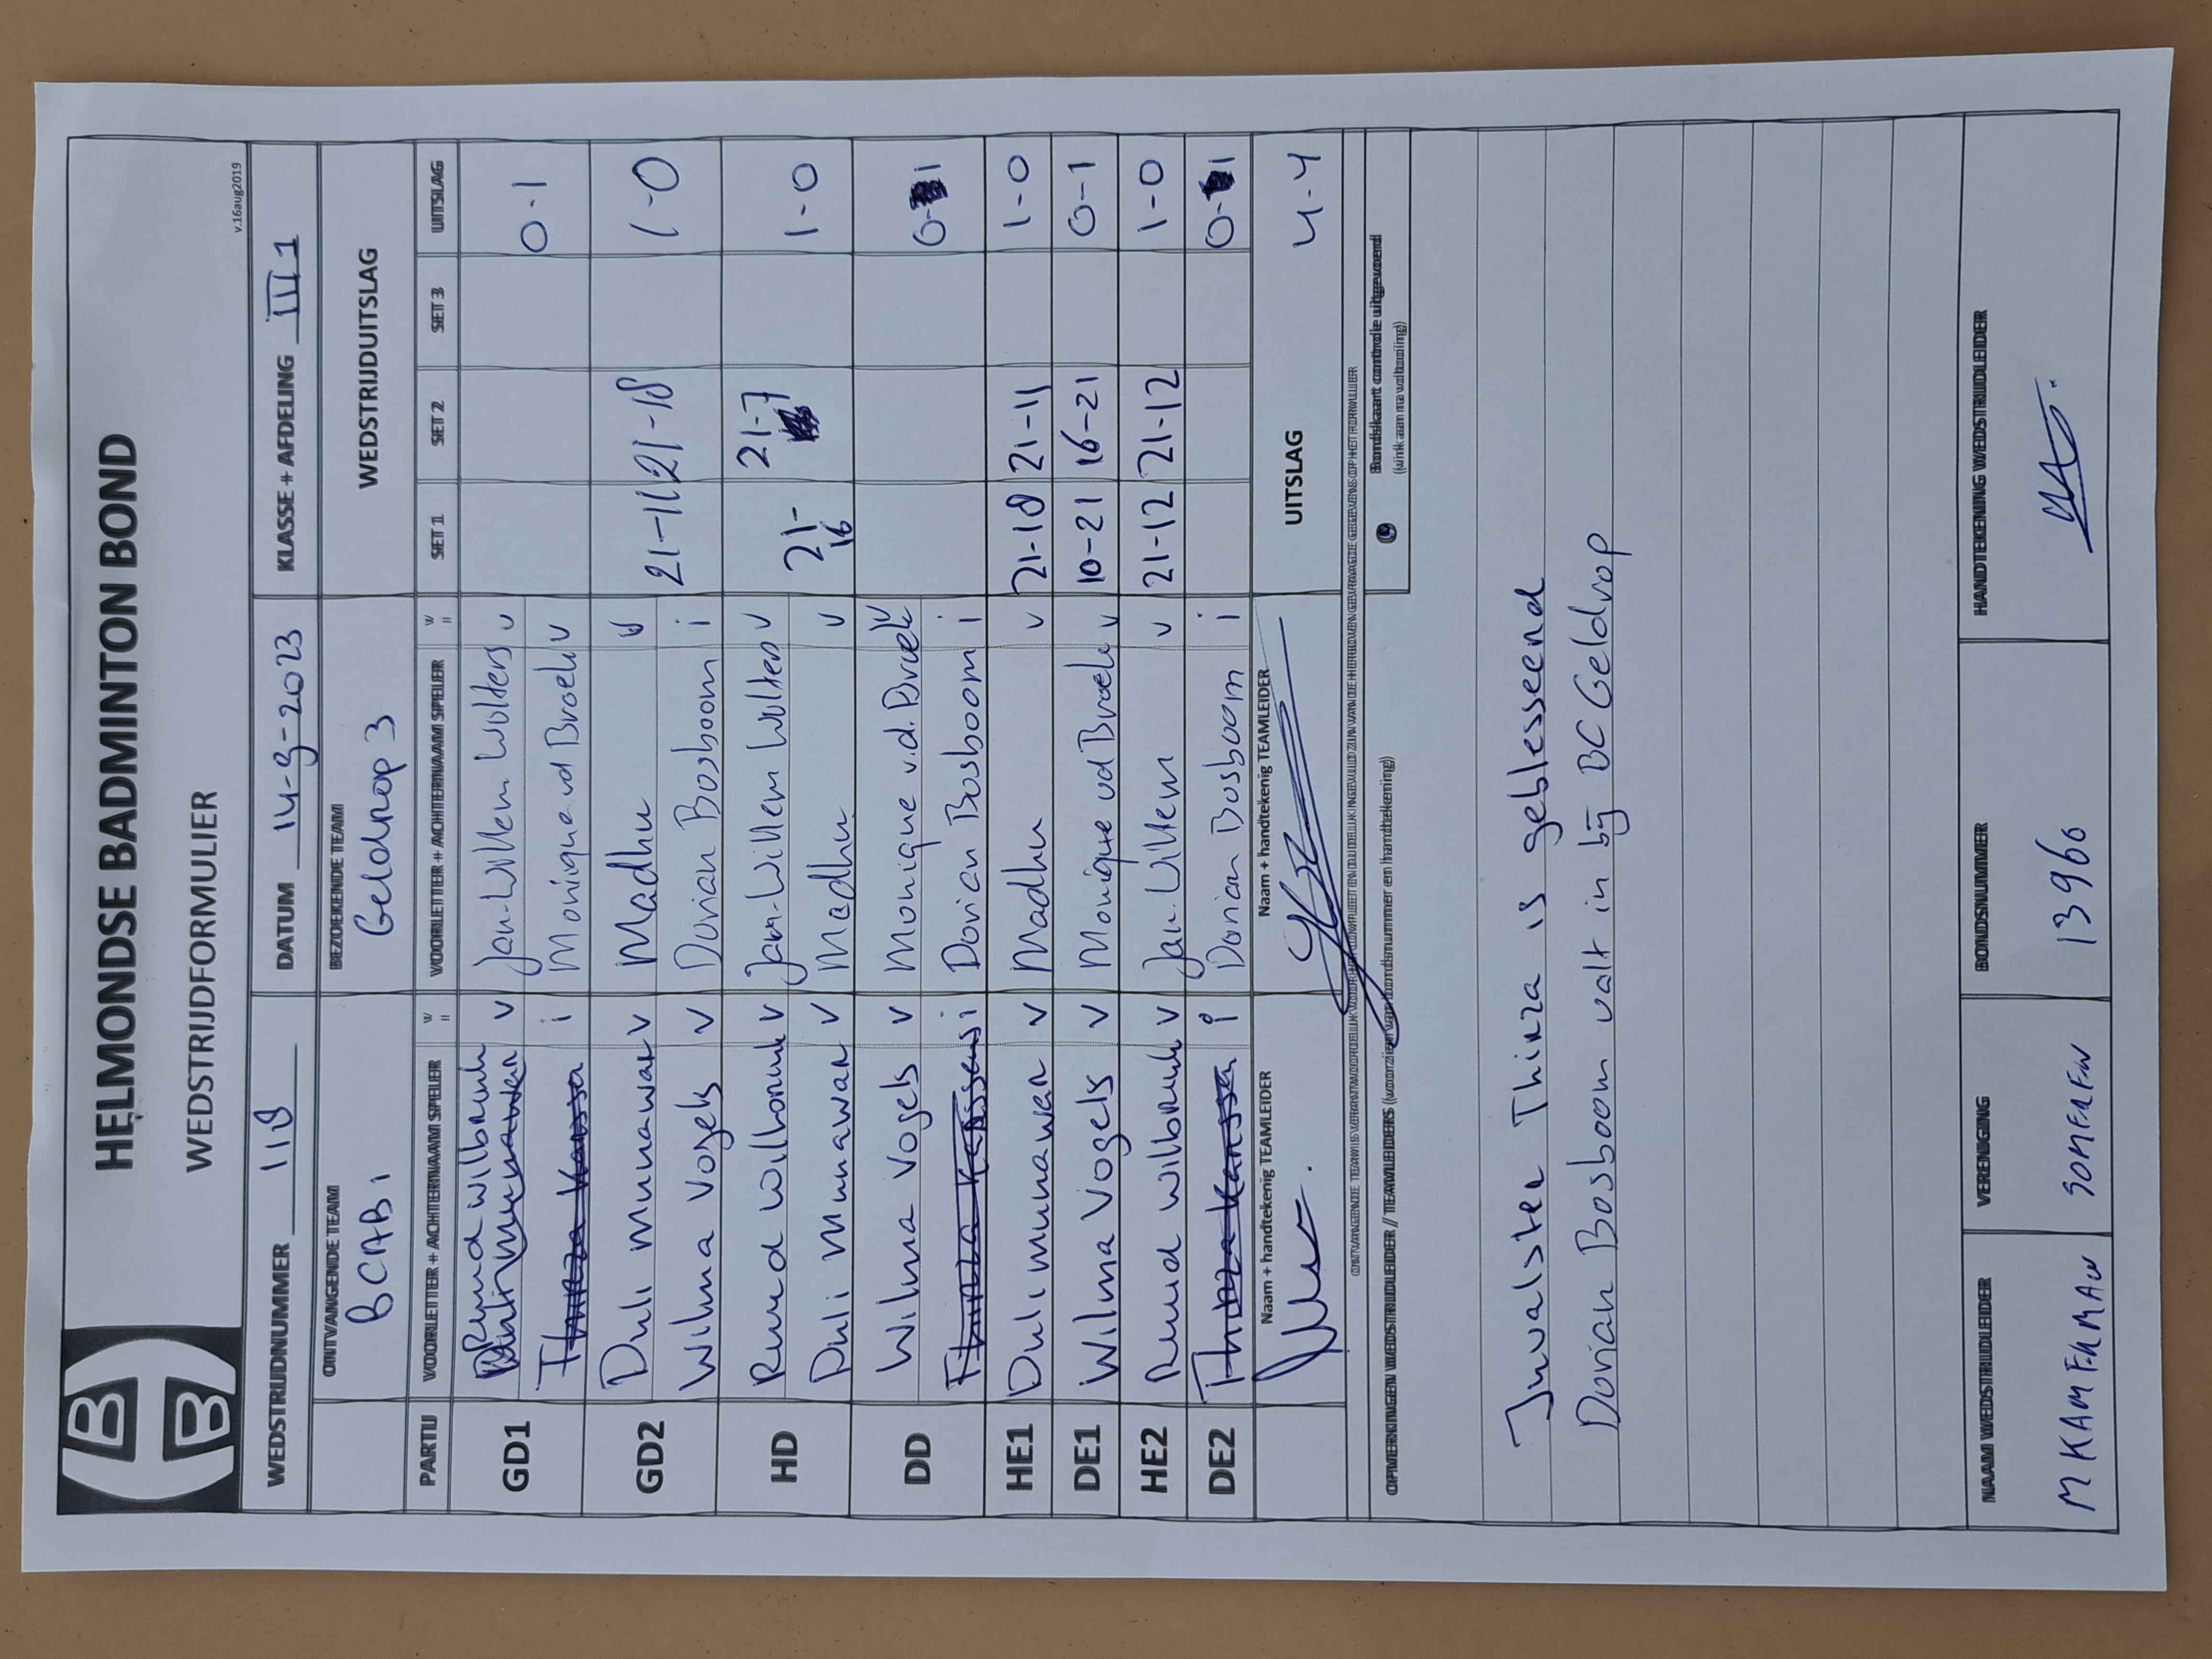 HELMONDSE BADMINTON BOND
WEDSTRIJDFORMULIER
v.16aug2019
WEDSTRIJDNUMMER 118 DATUM 14-9-2023 KLASSE + AFDELING III 1
ONTVANGENDE TEAM BEZOEKENDE TEAM WEDSTRIJDUITSLAG
BCAB 1 Geldrop 3
PARTIJ VOORLETTER + ACHTERNAAM SPELER VOORLETTER + ACHTERNAAM SPELER SET 1 SET 2 SET 3 UITSLAG
GD1 Ruud Wilbrink v Jan-Willem Wolters v 0-1
Thirza i Monique vd Broek v
GD2 Duli Munawar v Madhu v 21-11 21-18 1-0
Wilma Vogels v Dorian Bosboom i
HD Ruud Wilbrink v Jan-Willem Wolters v 21-16 21-7 1-0
Duli Munawar v Madhu v
DD Wilma Vogels v Monique v.d. Broek v 0-1
Thirza i Dorian Bosboom i
HE1 Duli Munawar v Madhu v 21-18 21-11 1-0
DE1 Wilma Vogels v Monique vd Broek v 10-21 16-21 0-1
HE2 Ruud Wilbrink v Jan-Willem v 21-12 21-12 1-0
DE2 Thirza i Dorian Bosboom i 0-1
Naam + handtekenig TEAMLEIDER Naam + handtekenig TEAMLEIDER UITSLAG 4-4
ONTVANGENDE TEAM IS VERANTWOORDELIJK VOOR HET COMPLEET EN DUIDELIJK INGEVULD ZIJN VAN DE HIERBOVEN GEVRAAGDE GEGEVENS OP HET FORMULIER
OPMERKINGEN WEDSTRIJDLEIDER / TEAMLEIDERS (voorzien van bondsnummer en handtekening)
Bondskaart controle uitgevoerd
(vink aan na voltooiing)
Invalster Thirza is geblesseerd
Dorian Bosboom valt in bij BC Geldrop
NAAM WEDSTRIJDLEIDER VERENIGING BONDSNUMMER HANDTEKENING WEDSTRIJDLEIDER
M KAMERMAN SOMEREN 13960